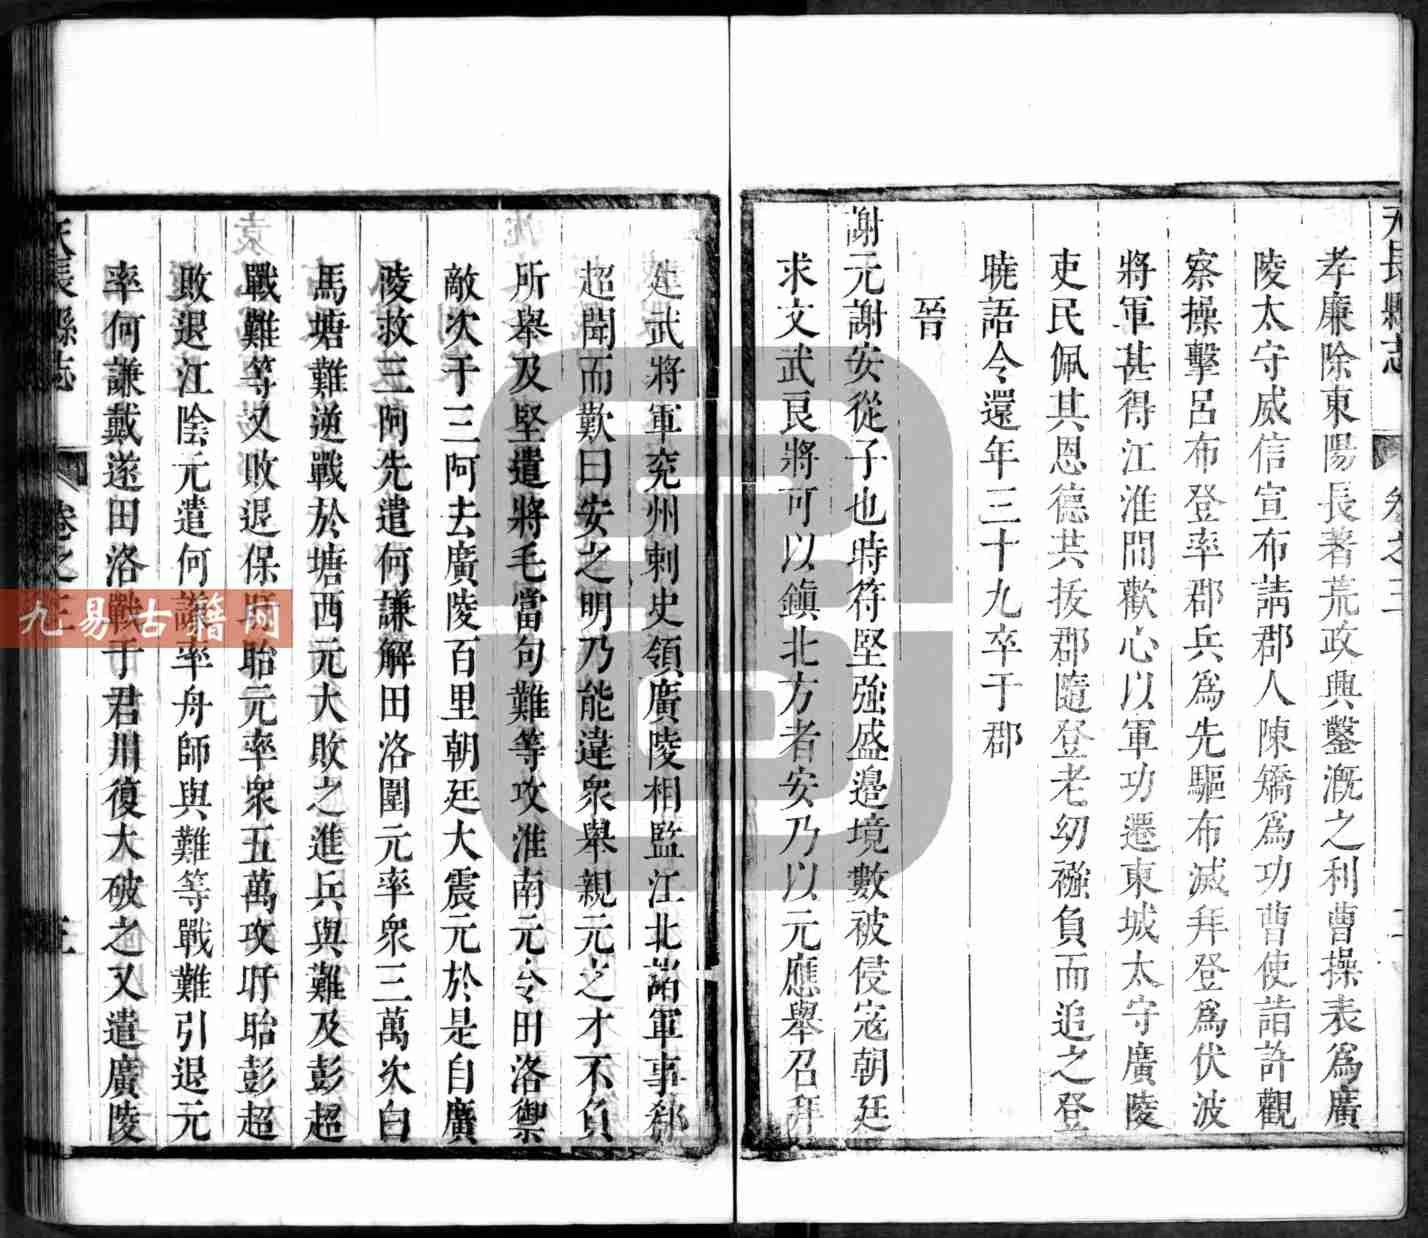 天長縣志
卷之三
二
孝廉除東陽長著荒政興鑿漑之利曹操表爲廣
陵太守威信宣布請郡人陳矯爲功曹使詣許觀
察操擊呂布登率郡兵爲先驅布滅拜登爲伏波
將軍甚得江淮間歡心以軍功遷東城太守廣陵
吏民佩其恩德共拔郡隨登老幼襁負而追之登
曉語令還年三十九卒于郡
晉
謝元謝安從子也時符堅強盛邉境數被侵寇朝廷
求文武良將可以鎮北方者安乃以元應舉召拜
建武將軍兖州刺史領廣陵相監江北諸軍事郗
超聞而歎曰安之明乃能違衆舉親元之才不負
所舉及堅遣將毛當句難等攻淮南元令田洛禦
敵次于三阿去廣陵百里朝廷大震元於是自廣
陵救三阿先遣何謙解田洛圍元率衆三萬次白
馬塘難逆戰於塘西元大敗之進兵與難及彭超
戰難等又敗退保盱眙元率衆五萬攻盱眙彭超
敗退江陰元遣何謙率舟師與難等戰難引退元
率何謙戴遂田洛戰于君川復大破之又遣廣陵
天長縣志
卷之三
三
九易古籍网